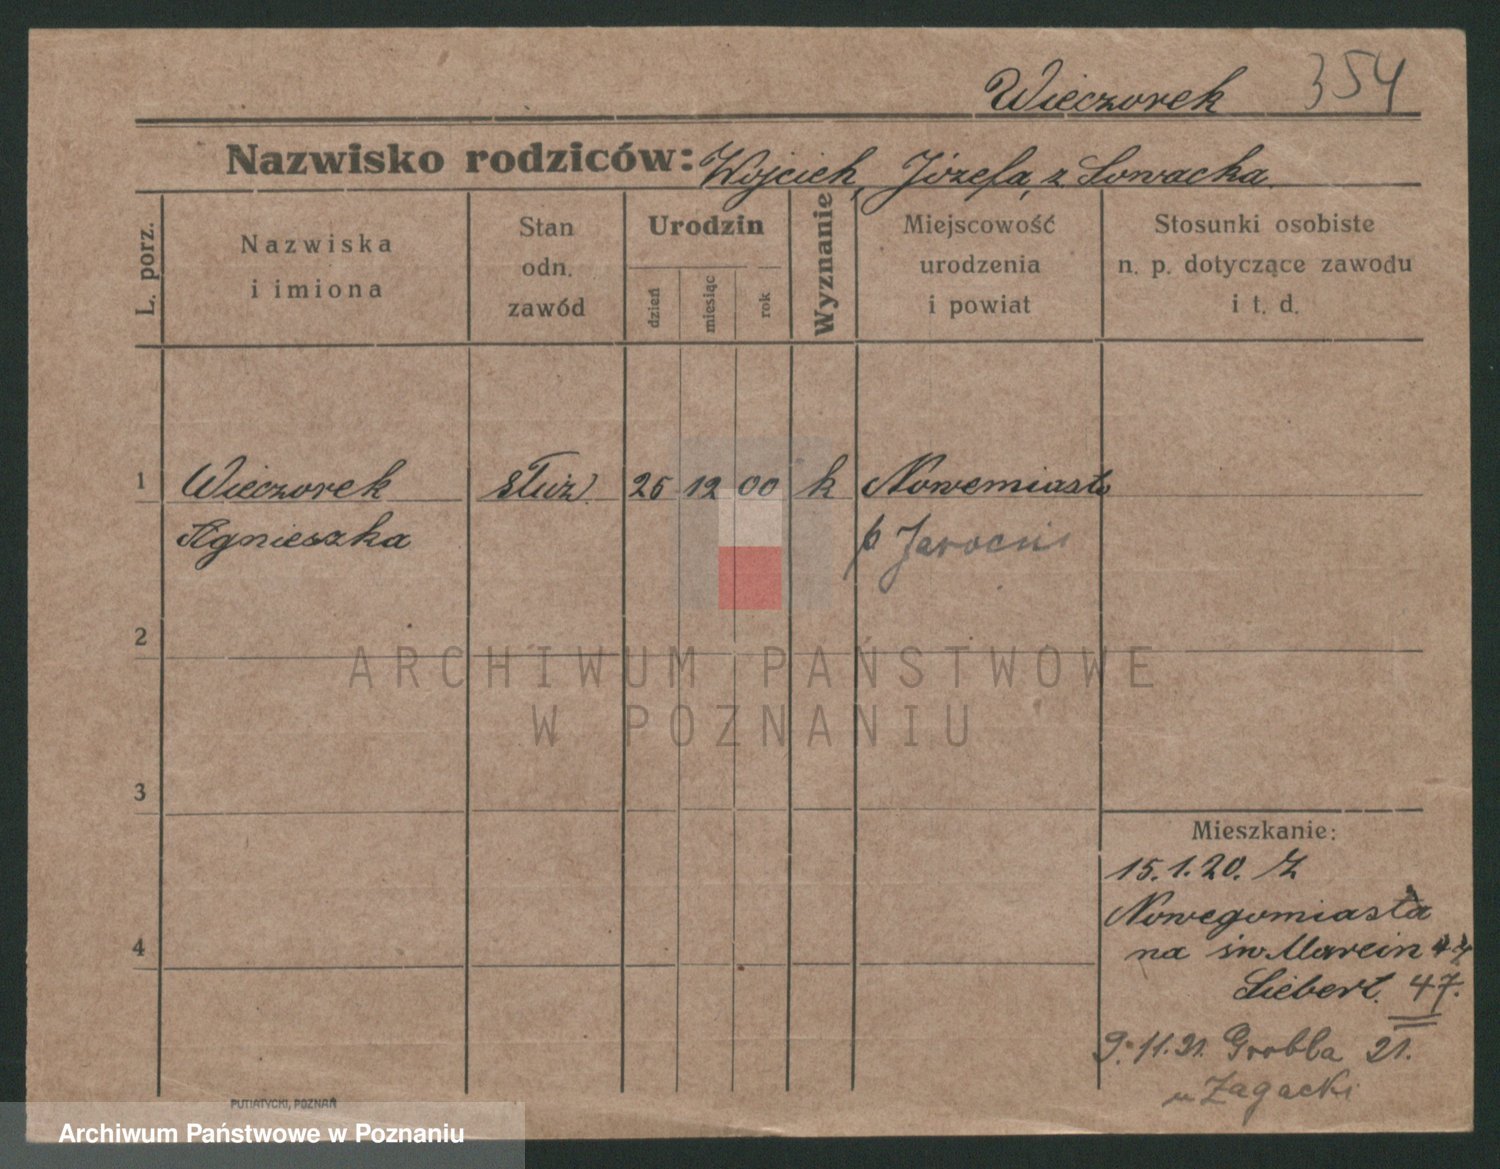 Wieczorek 354
Nazwisko rodziców: Wojciek, Józefa, z Sowacka.
L. porz.
Nazwiska
i imiona
Stan
odn.
zawód
Urodzin
dzień
miesiąc
rok
Wyznanie
Miejscowość
urodzenia
i powiat
Stosunki osobiste
n. p. dotyczące zawodu
i t. d.
1 Wieczorek służ. 26 12 00 k Nowemiasto
Agnieszka p Jarocin
2
ARCHIWUM PAŃSTWOWE
W POZNANIU
3
Mieszkanie:
15.1.20. Z
Nowegomiasta
4
na św. Marcin 47
Siebert. 47.
9.11.21. Grobla 21.
u Zagacki
PUTIATYCKI, POZNAŃ
Archiwum Państwowe w Poznaniu